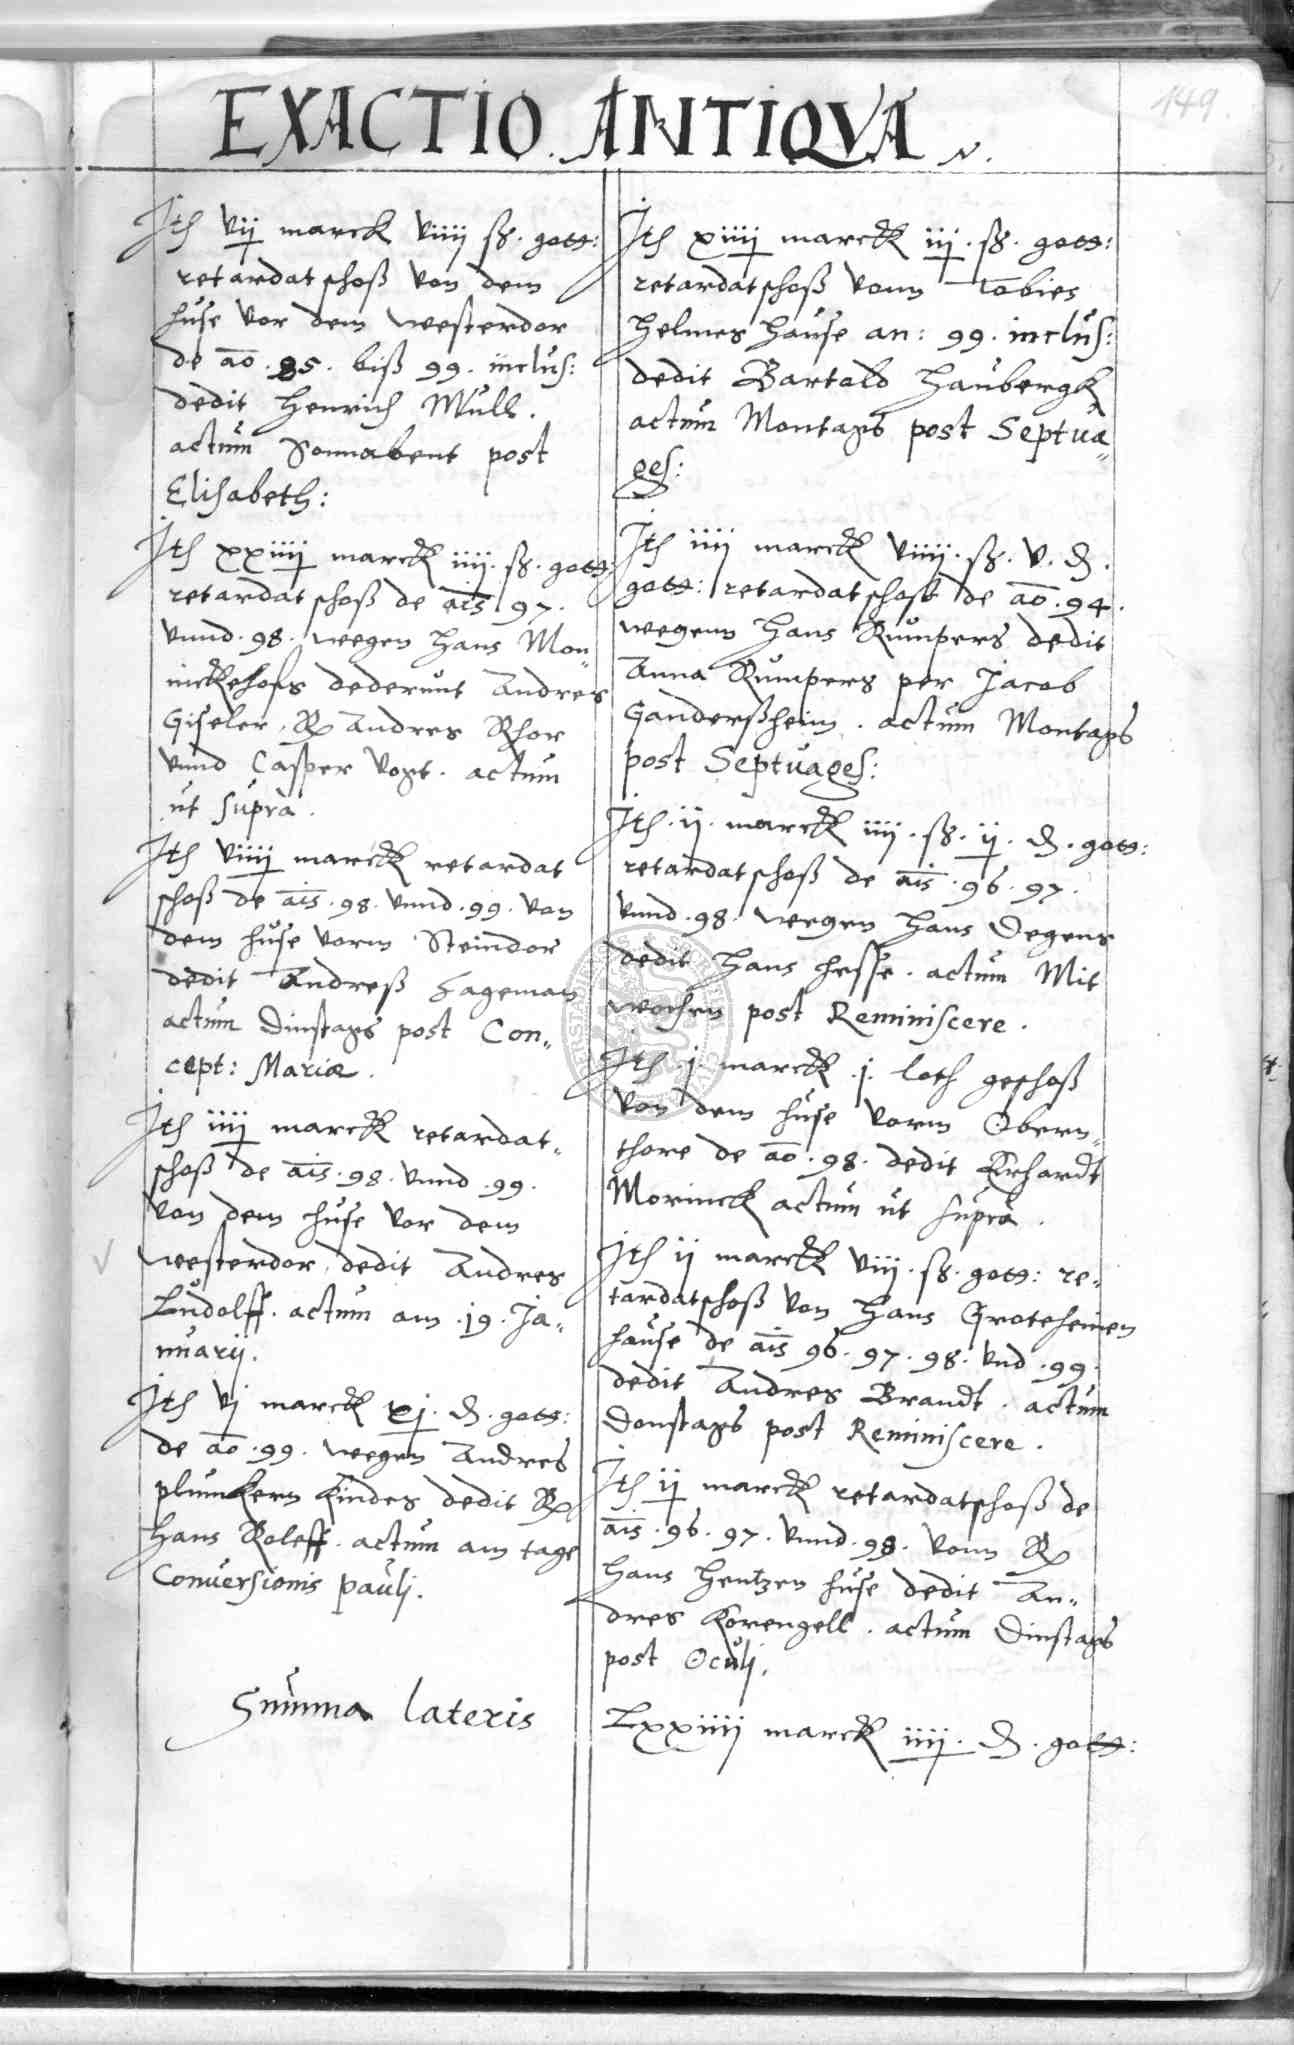 149.
EXACTIO ANTIQVA
Jth vij marck viiij ß. gott:
retardatschoß von dem
huse vor dem westerdor
de ao. 85. biß 99. inclus:
dedit Henrich Mull.
actum Sonnabent post
Elisabeth:
Jth xxiiij marck iiij. ß. gott:
retardatschoß de ais 97.
vnnd. 98. wegen Hans Mon„
nickehofs dederunt Andres
Giseler, R Andres Rhor
vnnd Casper Vogt. actum
ut supra.
Jth viiij marck retardat
schoß de ais. 98. vnnd. 99. von
dem huse vorm Steindor
dedit Andreß Hageman
actum Dinstags post Con„
cept: Mariæ.
Jth iiij marck retardat„
schoß de ais. 98. vnnd. 99.
von dem huse vor dem
westerdor, dedit Andres
Ludolff. actum am. 19. Ja„
nuarij.
Jth vj marck xj. d. gott:
de ao. 99. wegen Andres
plumkern Kindes dedit R
Hans Roleff. actum am tage
Conuersionis paulj.
Summa lateris
Jth xiiij marck iij. ß. gott:
retardatschoß vonn Tobies
Helmes Hause an: 99. inclus:
dedit Bartold Haubergk
actum Montags post Septua„
ges:
Jth iiij marck viiij. ß. v. d.
gott: retardatschoß de ao. 94.
wegenn Hans Rumpers dedit
Anna Rumpers per Jacob
Ganderßheim. actum Montags
post Septuages:
Jth. ij. marck iiij. ß. ij. d. gott:
retardatschoß de ais. 96. 97.
vnnd. 98. wegen Hans Degens
dedit Hans Hesse. actum Mit
wochen post Reminiscere.
Jth. j. marck. j. loth geschoß
von dem huse vorm Obern„
thore de ao. 98. dedit Erhardt
Morinck actum ut supra.
Jth ij marck viij. ß. gott: re„
tardatschoß von Hans Grotehenen
hause de ais 96. 97. 98. vnd. 99.
dedit Andres Brandt. actum
Donstags post Reminiscere.
Jth ij marck retardatschoß de
ais. 96. 97. vnnd. 98. vonn R
Hans Hentzen huse dedit An„
dres Korengell. actum Dinstags
post Oculj.
Lxxiiij marck iiij. d. gott: